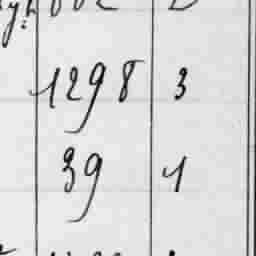 1298 3
39 1